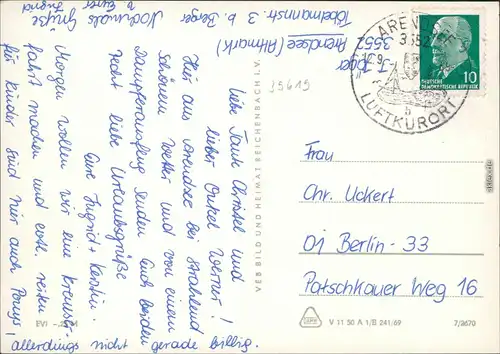 Liebe Tante Christel und
lieber Onkel Werner!
Hier aus Arendsee bei strahlend
schönem Wetter und von einem
Dampferausflug senden Euch beiden
recht liebe Urlaubsgrüße
Eure Ingrid + Kerstin.
Morgen wollen wir eine Kremser-
fahrt machen und evtl. reiten
für Kinder sind hier auch Ponys,
allerdings nicht gerade billig.
Nochmals Grüße
v. Eurer Ingrid
b. Berger
3552 Arendsee (Altmark)
Tobelmannstr. 3
35619
VEB BILD UND HEIMAT REICHENBACH I. V.
AREND
3552
LUFTKURORT
b
10
DEUTSCHE
DEMOKRATISCHE REPUBLIK
Frau
Chr. Uckert
01 Berlin-33
Patschkauer Weg 16
V 11 50 A 1/B 241/69
7/3670